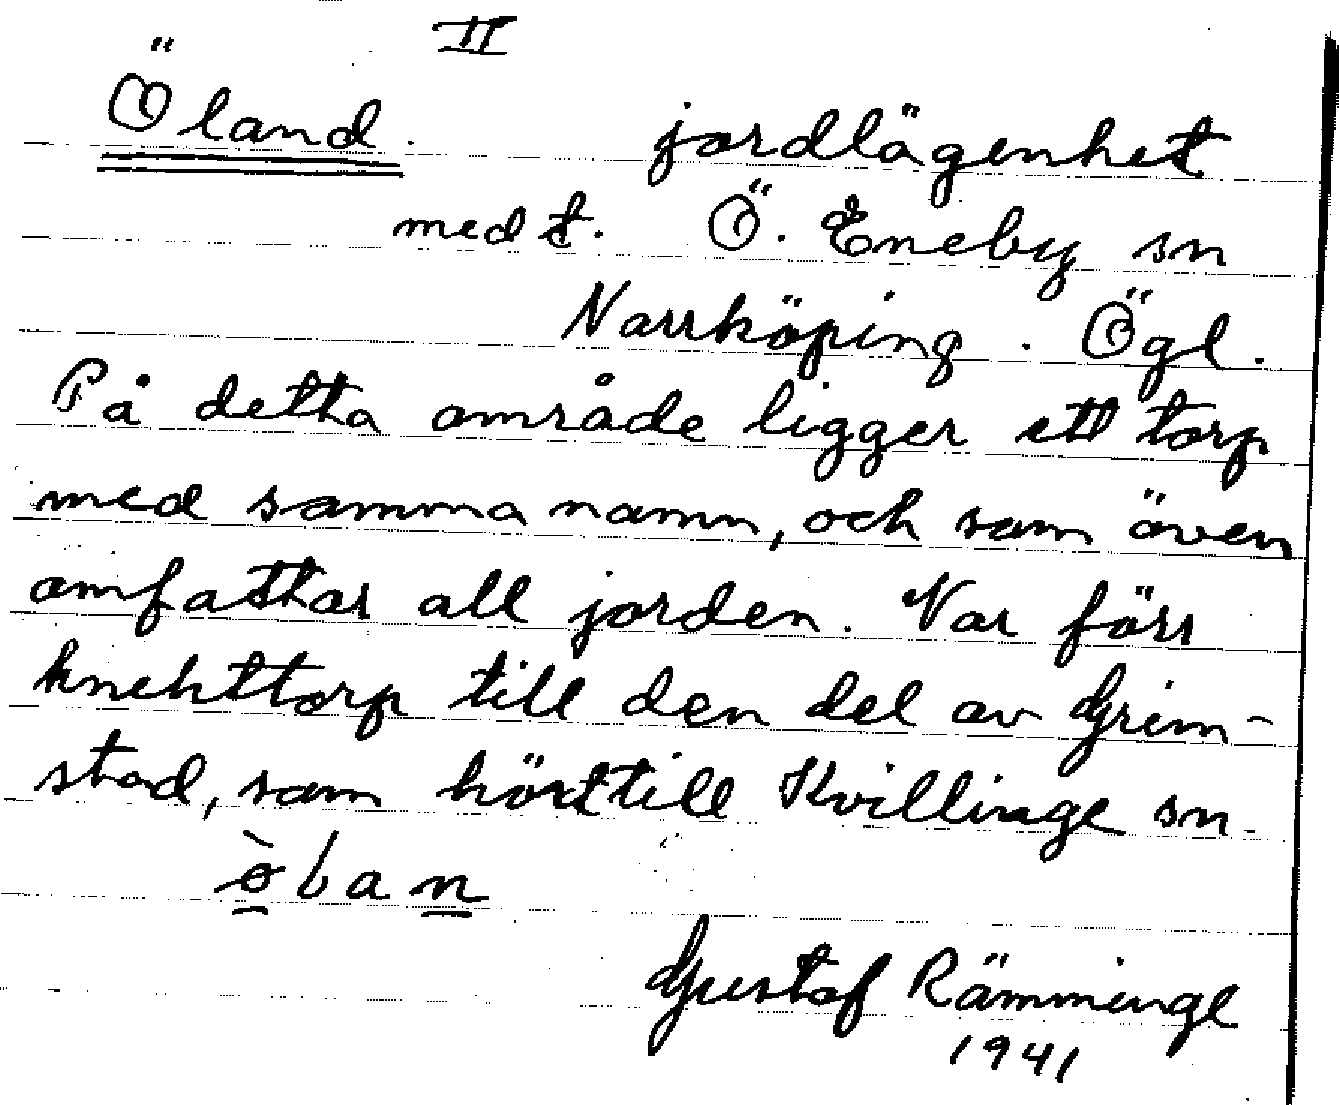 II
Öland. jordlägenhet
med t. Ö. Eneby sn
Norrköping. Ögl.
På detta område ligger ett torp
med samma namn, och som även
omfattar all jorden. Var förr
knekttorp till den del av Grim-
stad, som hört till Kvillinge sn.
Gustaf Rämminge
1941